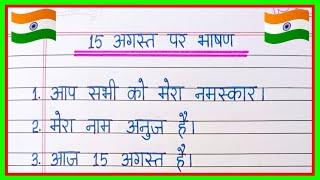 15 अगस्त पर भाषण
1. आप सभी को मेरा नमस्कार।
2. मेरा नाम अनुज है।
3. आज 15 अगस्त है।